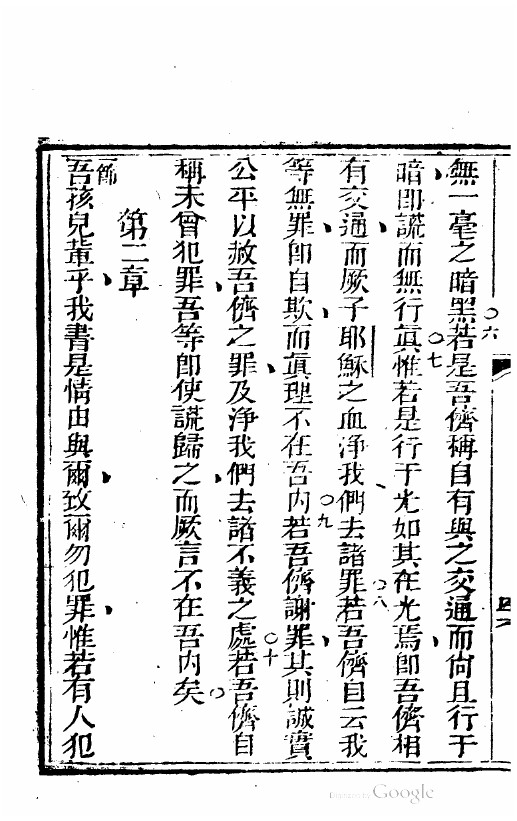 無一毫之暗黑○六若是吾儕稱自有與之交通而尙且行于
暗卽謊而無行眞○七惟若是行于光如其在光焉卽吾儕相
有交通而厥子耶穌之血淨我們去諸罪○八若吾儕自云我
等無罪卽自欺而眞理不在吾內○九若吾儕謝罪其則誠實
公平以赦吾儕之罪及淨我們去諸不義之處○十若吾儕自
稱未曾犯罪吾等卽使謊歸之而厥言不在吾內矣○
第二章
一節吾孩兒輩乎我書是情由與爾致爾勿犯罪惟若有人犯
Digitized by Google